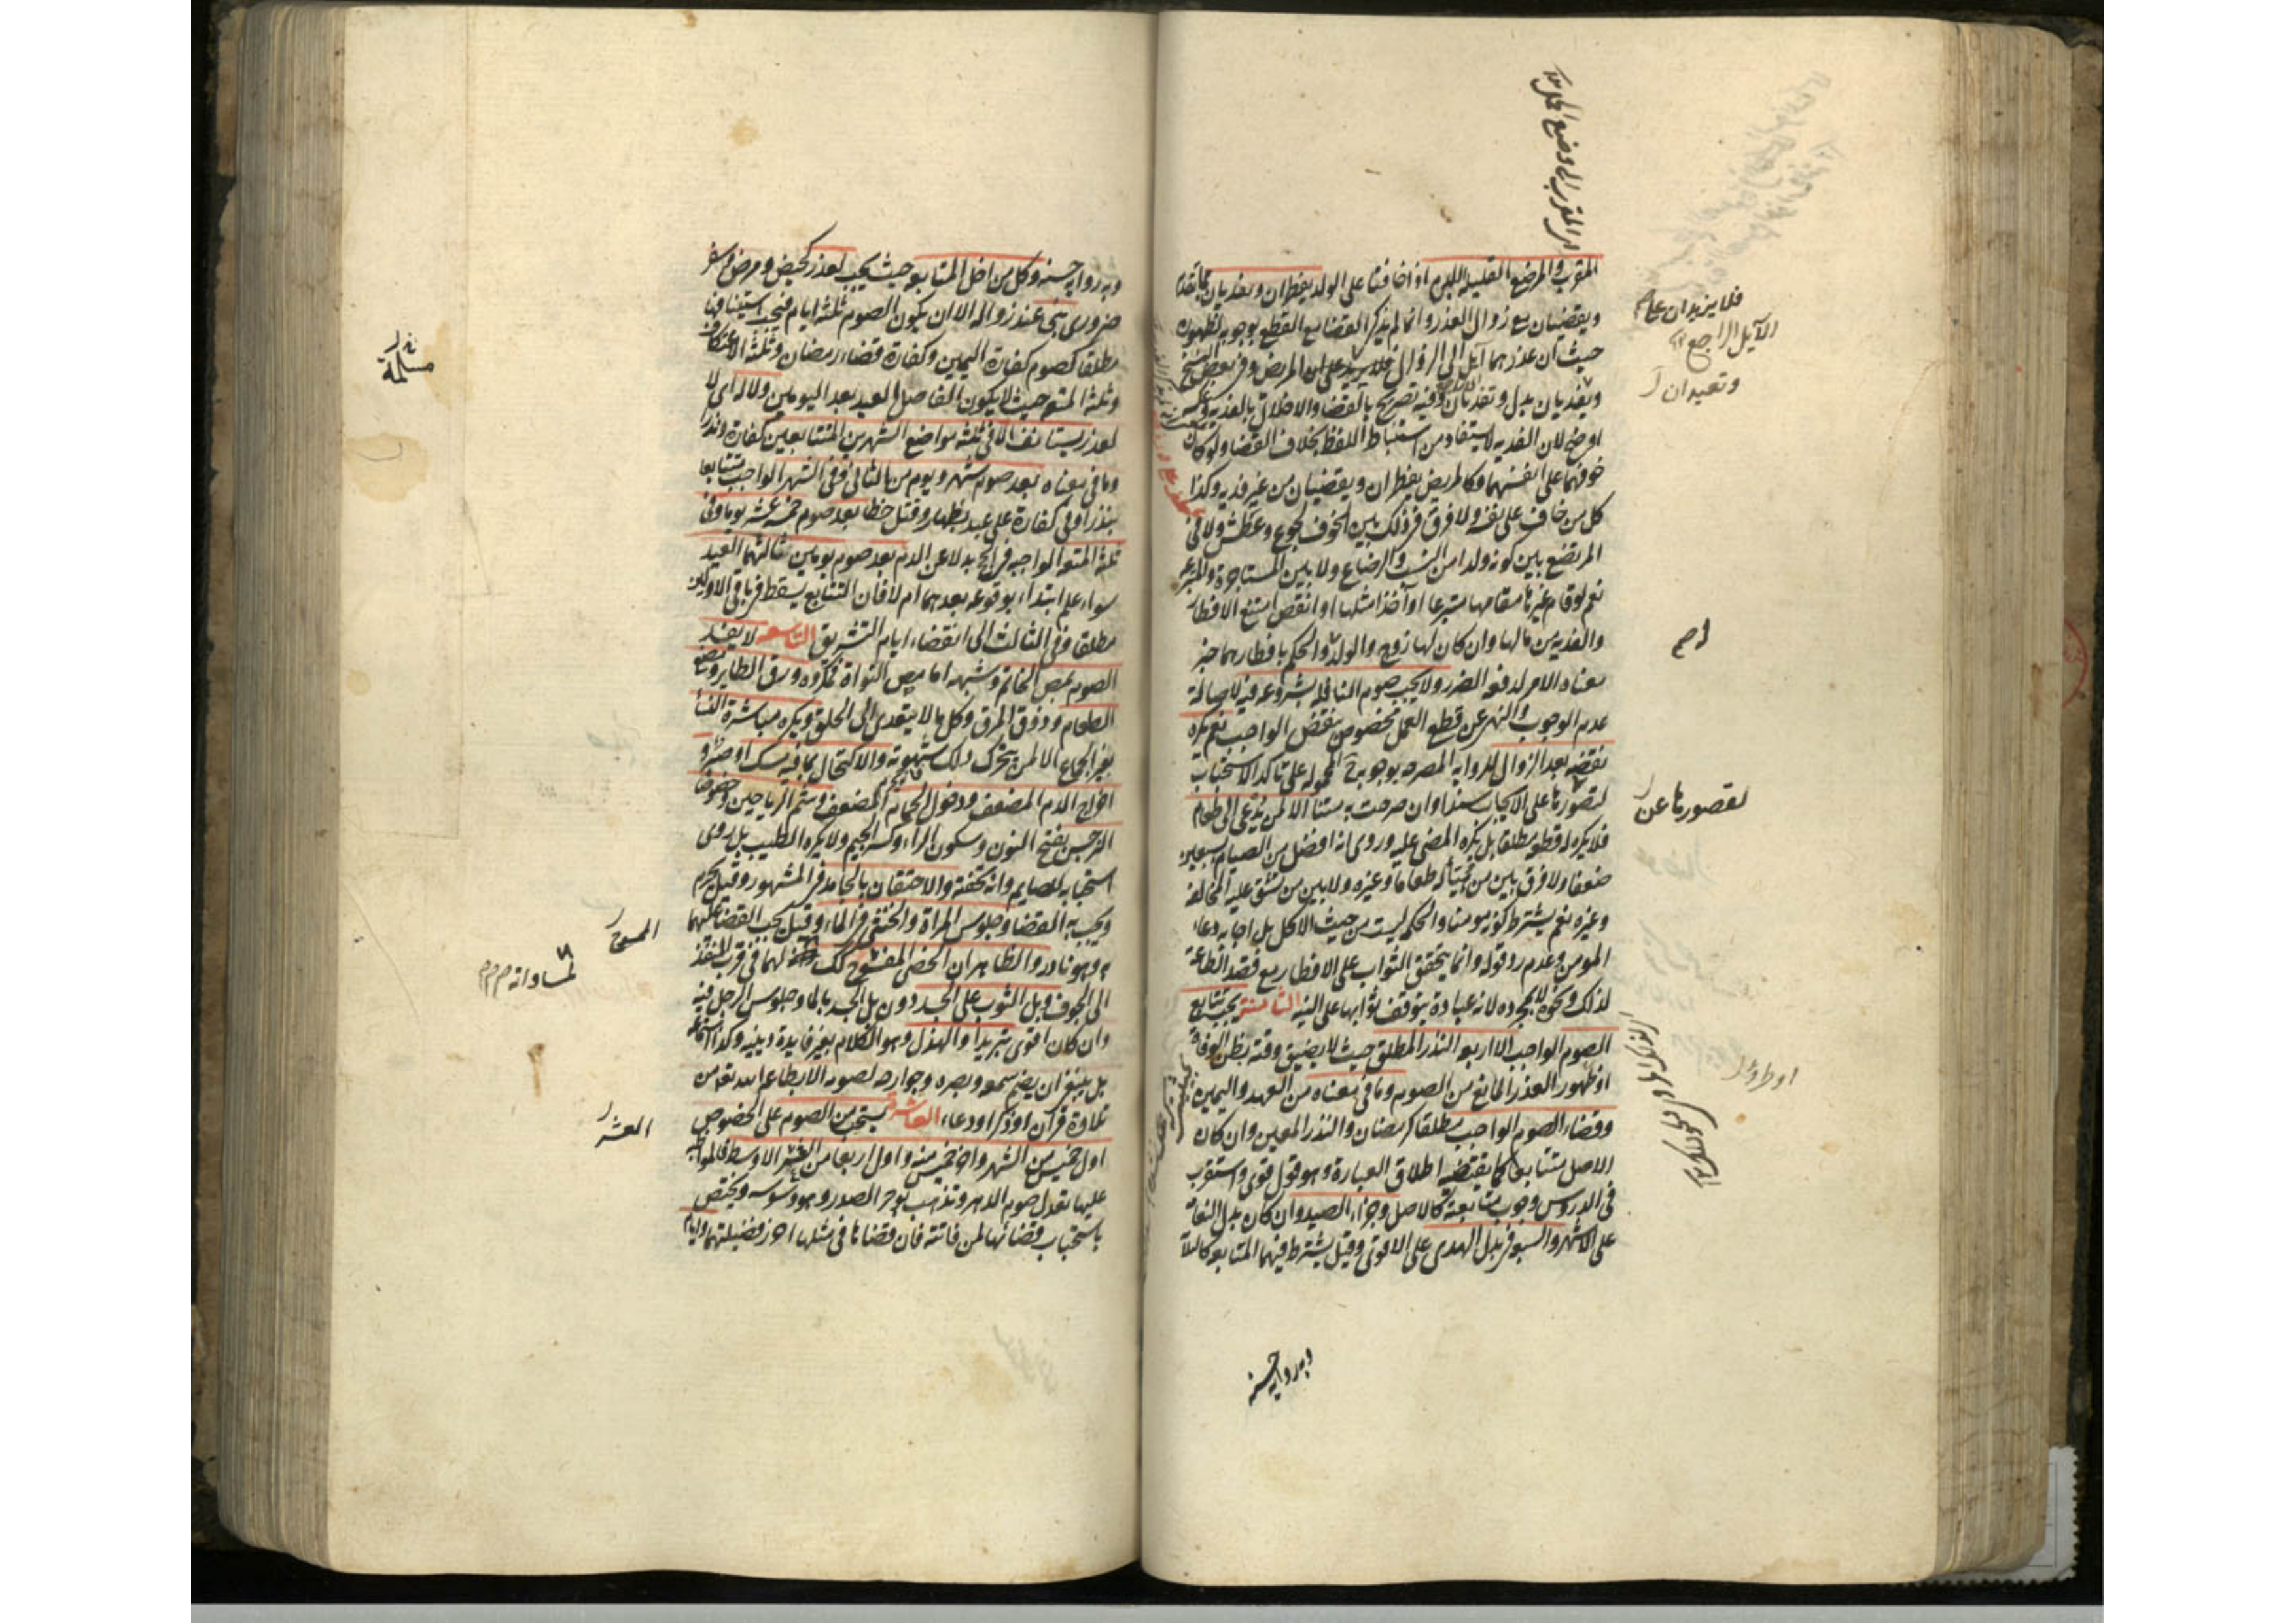 اى المقرب الى وضع الحمل
المقرب والمرضع القليله اللبن اذا خافتا على الولد يفطران ويفديان بما تقدم
ويقضيان مع زوال العذر وانما لم يذكر القضا مع القطع بوجوبه لظهوره
حيث ان عذرهما آيل الى الزوال فلا يزيد على المريض وفى بعض النسخ
ويفديان بدل وتفديان وفيه تصريح بالقضا والاخلال بالفديه وعكسه
اوضح لان الفديه لا يستفاد من استنباط اللفظ بخلاف القضا ولو كان
خوفهما على انفسهما فكالمريض يفطران ويقضيان من غير فديه وكذا
كل من خاف على نفسه ولا فرق فى ذلك بين الخوف لجوع وعطش ولا فى
المرتضع بين كونه ولدا من النسب والرضاع ولا بين المستاجرة والمتبرعه
نعم لو قام غيرها مقامها متبرعا او آخذا مثلها او انقص امتنع الافطار
والفديه من مالها وان كان لها زوج والولد والحكم بافطارهما خبر
معناه الامر لدفعه الضرر ولا يجب صوم النافله بشروعه فيه لاصالة
عدم الوجوب والنهى عن قطع العمل مخصوص بنقض الواجب نعم يكره
نقضه بعد الزوال للروايه المصرحه بوجوبه المحموله على تاكد الاستحباب
لقصورها على الايجاب سندا وان صرحت به متنا الا لمن يدعى الى طعام
فلا يكره له قطعه مطلقا بل يكره المضى عليه وروى انه افضل من الصيام بسبعين
ضعفا ولا فرق بين من هيأ له طعاما وغيره ولا بين من يشق عليه المخالفه
وغيره نعم يشترط كونه مومنا والحكمه ليست من حيث الاكل بل اجابه دعاء
المومن وعدم رد قوله وانما يتحقق الثواب على الافطار مع قصد الطاعة
لذلك ونحوه لا بمجرده لانه عبادة يتوقف ثوابها على النيه الثامنة يجب تتابع
الصوم الواجب الا اربعه النذر المطلق حيث لا يضيق وقته بظن الوفاة
او ظهور العذر المانع من الصوم وما فى معناه من العهد واليمين
وقضاء الصوم الواجب مطلقا كرمضان والنذر المعين وان كان
الاصل متتابعا كما يقتضيه اطلاق العبارة وهو قول قوى واستقرب
فى الدروس وجوب متابعته كالاصل وجزاء الصيد وان كان بدل النعامة
على الاشهر والسبعه فى بدل الهدى على الاقوى وقيل يشترط فيها المتابعه كالثلاثة
فلا يزيدان على
الآيل الراجع
وتعيدان
لقصورها عن
وبه روايه حسنه
وبه روايه حسنه وكل من اخل المتابعه حيث يجب لعذر كحيض ومرض وسفر
ضرورى بنى عند زواله الا ان يكون الصوم ثلثه ايام فيجب استينافها
مطلقا كصوم كفارة اليمين وكفارة قضاء رمضان وثلثه الاعتكاف
وثلثه المتعه حيث لا يكون الفاصل العيد بعد اليومين ولا له اى لا
لعذر يستانف الا فى ثلثه مواضع الشهرين المتتابعين كفارة ونذرا
وما فى معناه بعد صوم شهر ويوم من الثانى وفى الشهر الواجب متتابعا
بنذر او فى كفارة على عبد بظهار وقتل خطا بعد صوم خمسه عشر يوما وفى
ثلثه المتعه الواجبه فى الحج بدلا عن الدم بعد صوم يومين ثالثهما العيد
سواء علم ابتداء بوقوعه بعدهما ام لا فان التتابع يسقط فى باقى الاولين
مطلقا وفى الثالث الى انقضاء ايام التشريق التاسعه لا يفسد
الصوم بمص الخاتم وشبهه اما مص النواة فمكروه وزق الطاير ومضغ
الطعام وذوق المرق وكل ما لا يتعدى الى الحلق ويكره مباشرة النساء
بغير الجماع الا لمن يتحرك ذلك شهوته والاكتحال بما فيه مسك او صبر و
اخراج الدم المضعف ودخول الحمام المضعف وشم الرياحين وخصوصا
النرجس بفتح النون وسكون الراء وكسر الجيم ولا يكره الطيب بل روى
استحبابه للصايم وانه تحفته والاحتقان بالجامد فى المشهور وقيل يحرم
ويجب به القضا وجلوس المراة والخنثى فى الماء وقيل يجب القضا عليهما
به وهو نادر والظاهر ان الخصى المفسوح كذلك لهما فى قرب المنفذ
الى الجوف وبل الثوب على الجسد دون بل الجسد بالماء وجلوس الرجل فيه
وان كان اقوى تبريدا والهذر وهو الكلام بغير فايدة دينيه وكذا استماعه
بل ينبغى ان يصم سمعه وبصره وجوارحه لصومه الا بطاعه الله تعالى من
تلاوة قران او ذكر او دعاء العاشرة يستحب من الصوم على الخصوص
اول خميس من الشهر واخر خميس منه واول اربعا من العشر الاوسط فالمواظبه
عليها تعدل صوم الدهر وتذهب بوحر الصدر وهو وسوسه ويختص
باستحباب قضائها لمن فاتته فان قضاها فى مثلها احرز فضيلتهما وايام
الممسوح
لمساواته
العشر